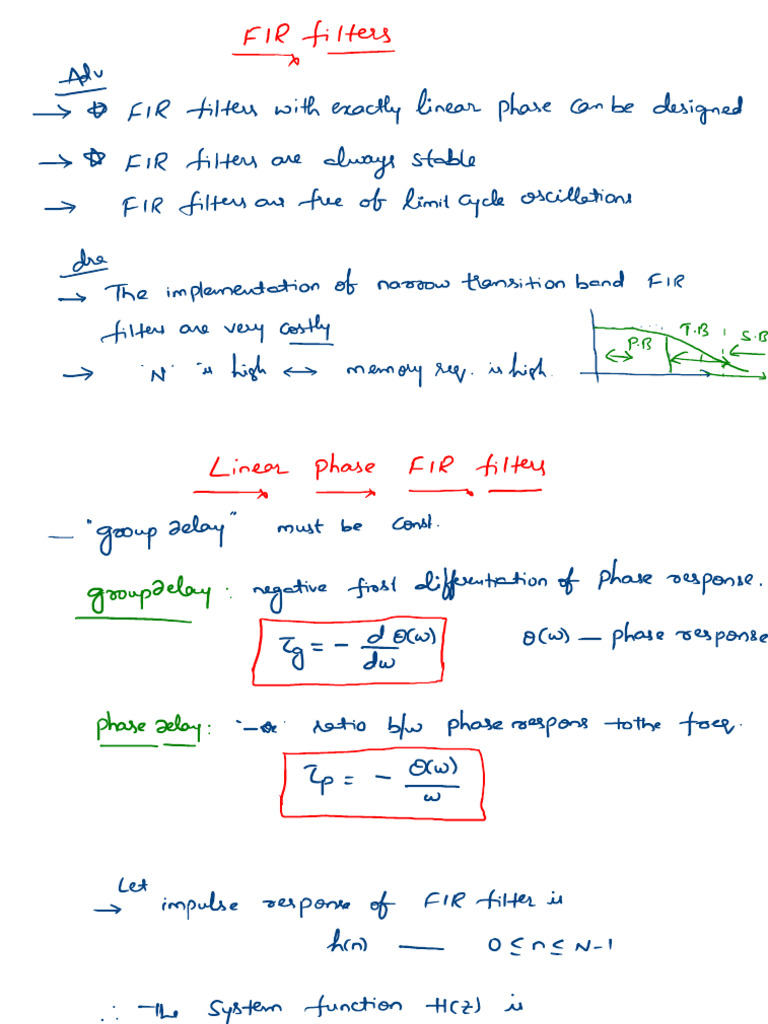 FIR filters
Adv
→ FIR filters with exactly linear phase can be designed
→ FIR filters are always stable
→ FIR filters are free of limit cycle oscillations
dis
→ The implementation of narrow transition band FIR
filters are very costly
P.B T.B S.B
→ 'N' is high ↔ memory req. is high.
Linear phase FIR filters
— "group delay" must be const.
group delay : negative first differentiation of phase response.
τg = - d θ(ω) / dω θ(ω) — phase response
phase delay : -ve ratio b/w phase respons to the freq.
τp = - θ(ω) / ω
→ Let impulse response of FIR filter is
h(n) — 0 ≤ n ≤ N-1
∴ The system function H(z) is